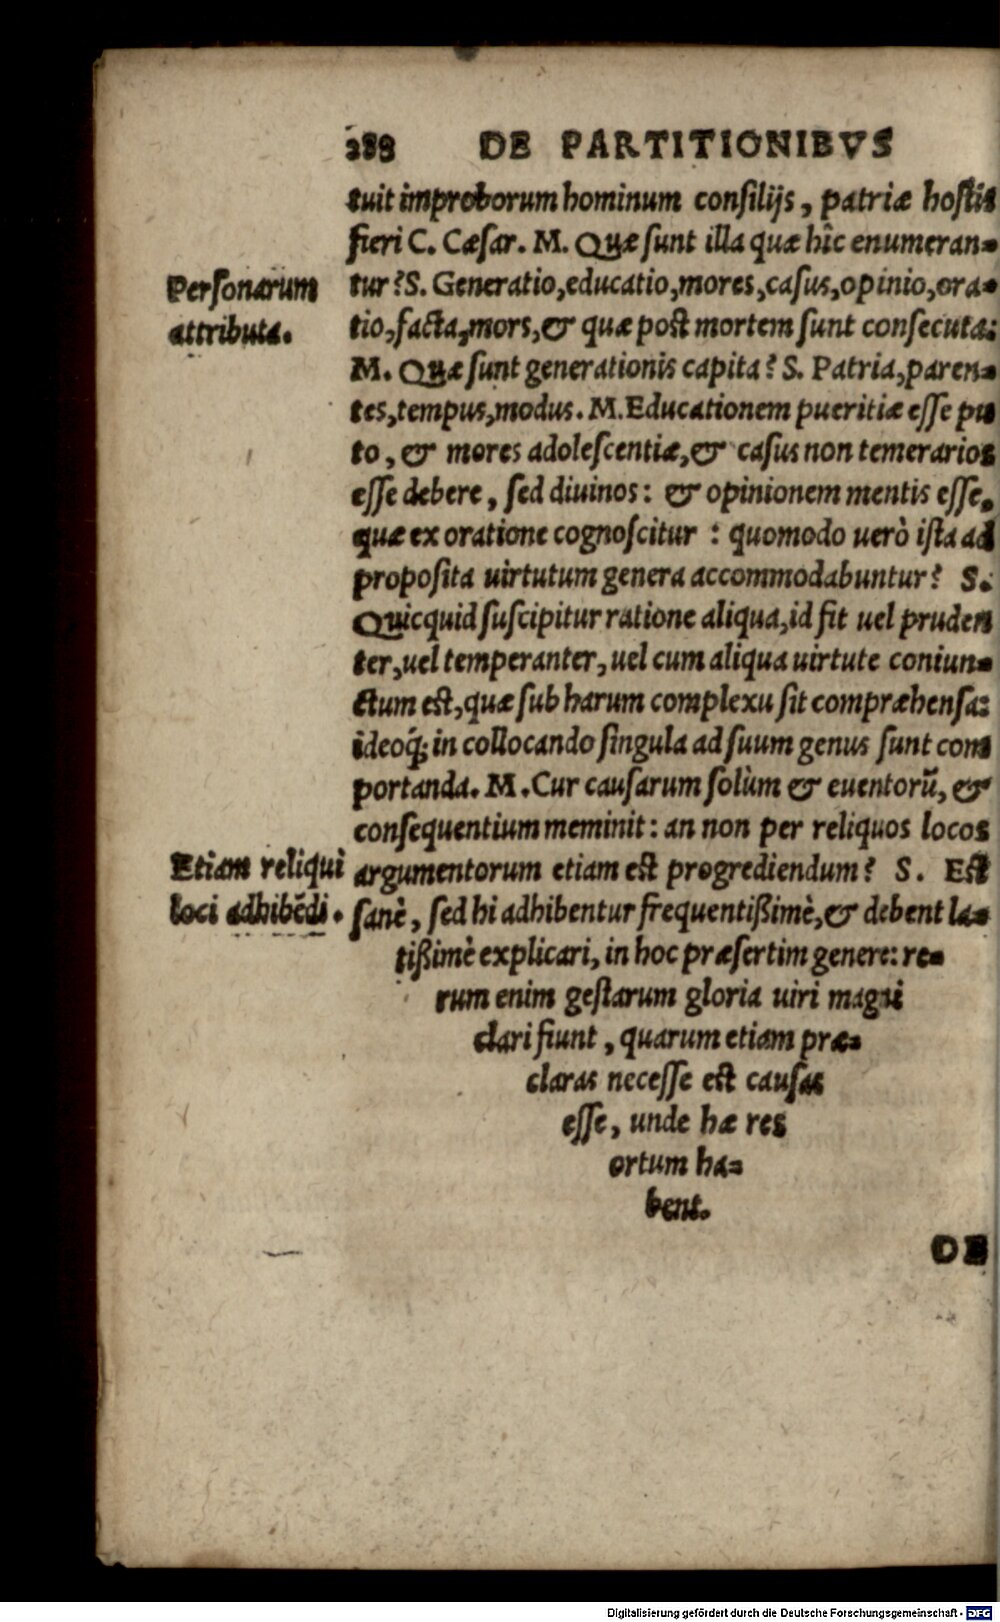 288 DE PARTITIONIBVS
tuit improborum hominum consilijs, patriæ hostis
fieri C. Cæsar. M. Quæ sunt illa quæ hîc enumeran-
Personarum
attributa.
tur? S. Generatio, educatio, mores, casus, opinio, ora-
tio, facta, mors, & quæ post mortem sunt consecuta:
M. Quæ sunt generationis capita? S. Patria, paren-
tes, tempus, modus. M. Educationem pueritiæ esse pu
to, & mores adolescentiæ, & casus non temerarios
esse debere, sed diuinos: & opinionem mentis esse,
quæ ex oratione cognoscitur : quomodo uerò ista ad
proposita uirtutum genera accommodabuntur? S.
Quicquid suscipitur ratione aliqua, id fit uel pruden
ter, uel temperanter, uel cum aliqua uirtute coniun-
ctum est, quæ sub harum complexu sit compræhensa:
ideoq́; in collocando singula ad suum genus sunt com
portanda. M. Cur causarum solùm & euentorũ, &
consequentium meminit: an non per reliquos locos
Etiam reliqui
loci adhibẽdi.
argumentorum etiam est progrediendum? S. Est
sanè, sed hi adhibentur frequentißimè, & debent la-
tißimè explicari, in hoc præsertim genere: re-
rum enim gestarum gloria uiri magni
clari fiunt, quarum etiam præ-
claras necesse est causas
esse, unde hæ res
ortum ha-
bent.
DE
Digitalisierung gefördert durch die Deutsche Forschungsgemeinschaft - DFG